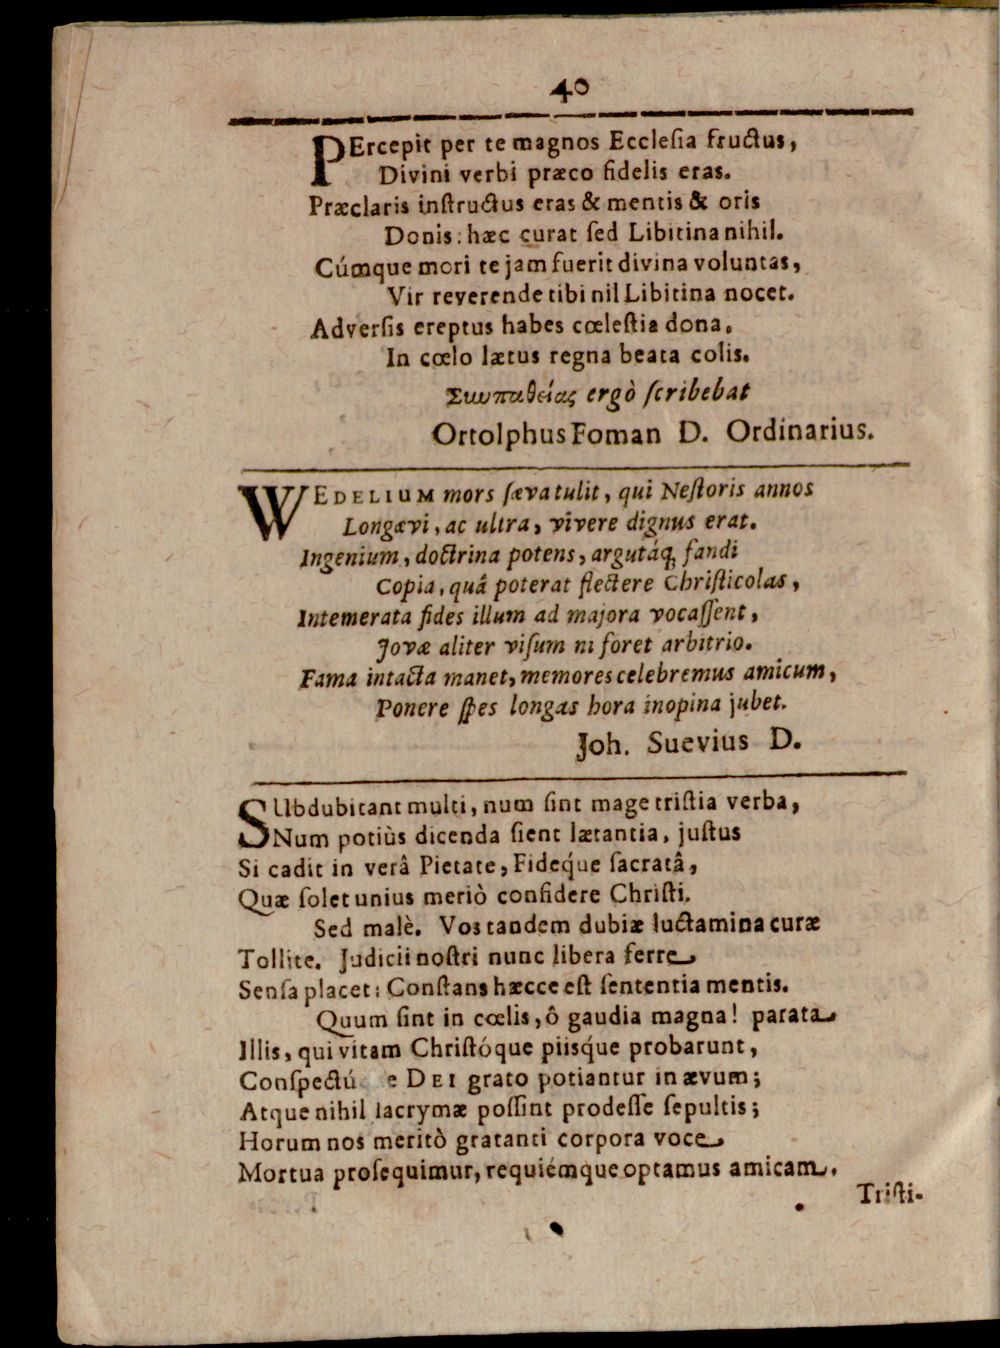 40
PErcepit per te magnos Ecclesia fructus,
Divini verbi præco fidelis eras.
Præclaris instructus eras & mentis & oris
Donis: hæc curat sed Libitina nihil.
Cúmque mori te jam fuerit divina voluntas,
Vir reverende tibi nil Libitina nocet.
Adversis ereptus habes cœlestia dona,
In cœlo lætus regna beata colis.
Συμπαθείας ergò scribebat
Ortolphus Foman D. Ordinarius.
WEDELIUM mors sæva tulit, qui Nestoris annos
Longævi, ac ultra, vivere dignus erat.
Ingenium, doctrina potens, argutáq́; fandi
Copia, quâ poterat flectere Christicolas,
Intemerata fides illum ad majora vocassent,
Jovæ aliter visum ni foret arbitrio.
Fama intacta manet, memores celebremus amicum,
Ponere spes longas hora inopina jubet.
Joh. Suevius D.
SUbdubitant multi, num sint mage tristia verba,
Num potiùs dicenda sient lætantia, justus
Si cadit in verâ Pietate, Fideq́ue sacratâ,
Quæ solet unius meriò confidere Christi.
Sed malè. Vos tandem dubiæ luctamina curæ
Tollite. Judicii nostri nunc libera ferre
Sensa placet: Constans hæcce est sententia mentis.
Quum sint in cœlis, ô gaudia magna! parata
Illis, qui vitam Christóque piisq́ue probarunt,
Conspectú e DEI grato potiantur in ævum;
Atque nihil lacrymæ possint prodesse sepultis;
Horum nos meritò gratanti corpora voce
Mortua prosequimur, requiémque optamus amicam.
Tristi-